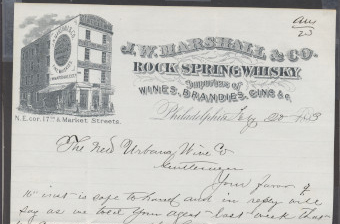 ans
23
J. W. MARSHALL & CO.
ROCK SPRING WHISKY
Importers of
WINES, BRANDIES, GINS &c
N.E. cor. 17th & Market Streets.
Philadelphia, 20 1883
The New Urbana Wine Co
Gentlemen
Your favor of
15 inst is safe to hand and in reply will
say as we told your agent last week that